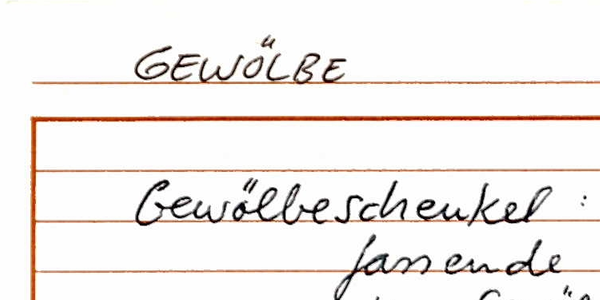 GEWÖLBE
Gewölbeschenkel :
fassende